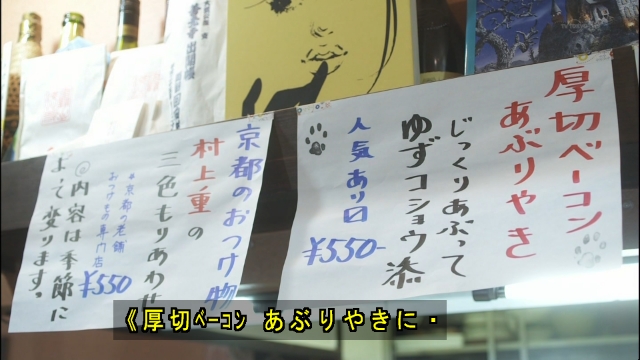 厚切ベーコン
あぶりやき
じっくりあぶって
ゆずコショウ添
人気あり〼
¥550-
京都のおつけ物
村上重の
三色もりあわせ
京都の老舗
おつけもの専門店
¥550
◎内容は季節に
よって変ります。
《厚切ﾍﾞｰｺﾝ あぶりやきに・